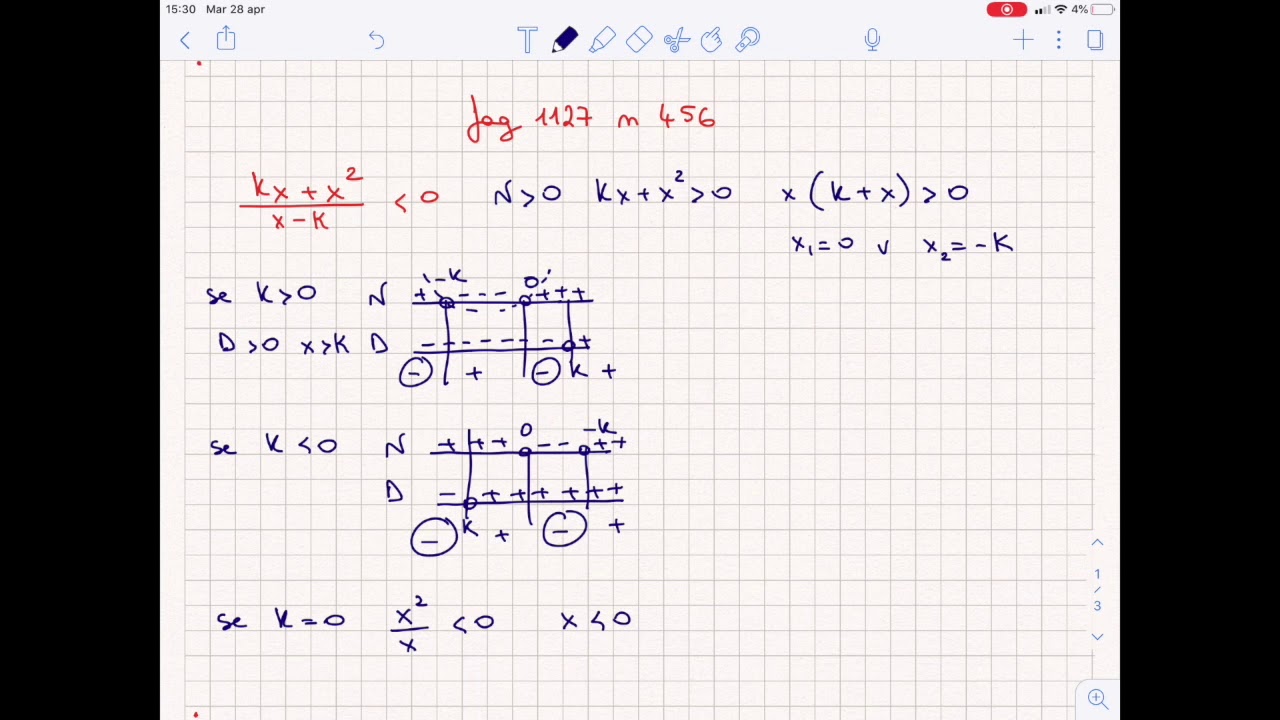 15:30 Mar 28 apr 4%
T
Jag 1127 n 456
kx + x² / x - k < 0 N > 0 kx + x² > 0 x (k + x) > 0
x₁ = 0 v x₂ = - k
se k > 0 N + -k - - - 0 + + +
D > 0 x > k D - - - - - - - +
- + - k +
se k < 0 N + + + 0 - - -k + +
D - + + + + + +
- k + - +
se k = 0 x² / x < 0 x < 0
1
/
3